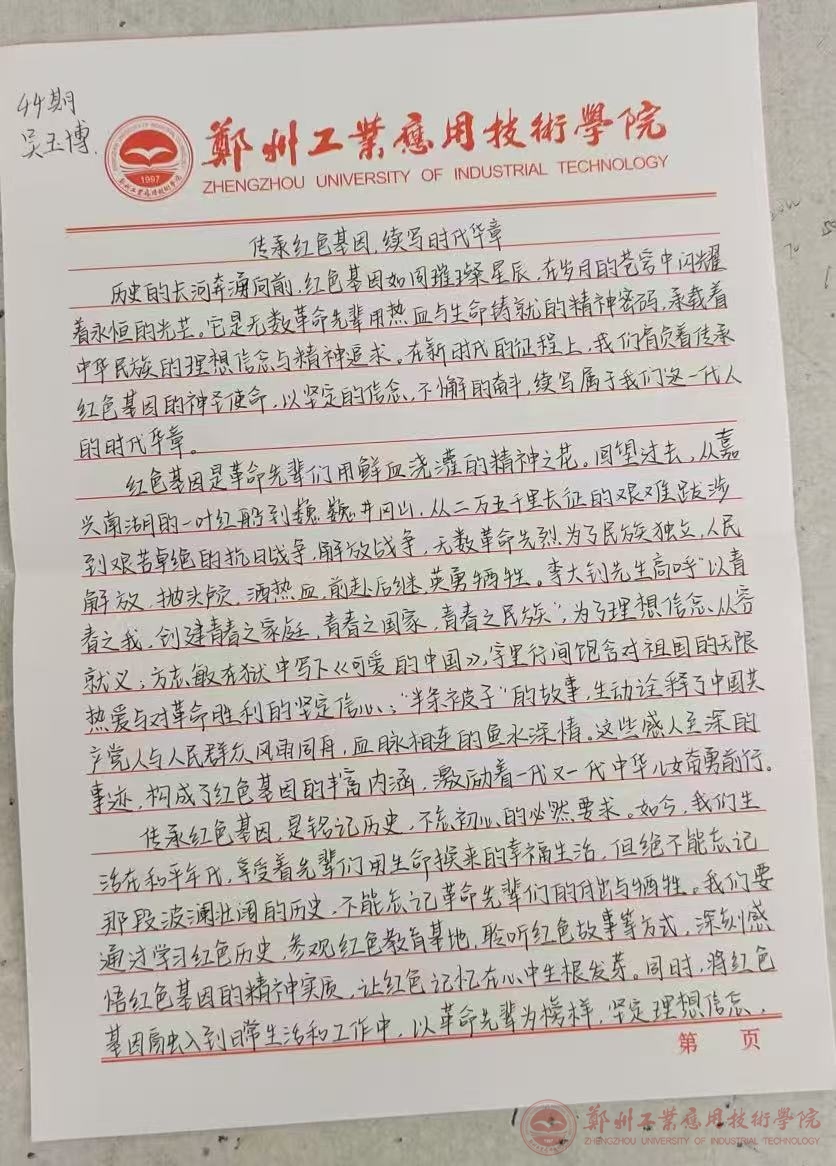 44期
吴玉博.
1997
鄭州工業應用技術學院
ZHENGZHOU UNIVERSITY OF INDUSTRIAL TECHNOLOGY
传承红色基因,续写时代华章
历史的长河奔涌向前,红色基因如同璀璨星辰,在岁月的苍穹中闪耀
着永恒的光芒。它是无数革命先辈用热血与生命铸就的精神密码,承载着
中华民族的理想信念与精神追求。在新时代的征程上,我们肩负着传承
红色基因的神圣使命,以坚定的信念、不懈的奋斗,续写属于我们这一代人
的时代华章。
红色基因是革命先辈们用鲜血浇灌的精神之花。回望过去,从嘉
兴南湖的一叶红船到巍巍井冈山,从二万五千里长征的艰难跋涉
到艰苦卓绝的抗日战争、解放战争,无数革命先烈为了民族独立、人民
解放,抛头颅、洒热血,前赴后继,英勇牺牲。李大钊先生高呼“以青
春之我,创建青春之家庭,青春之国家,青春之民族”,为了理想信念从容
就义;方志敏在狱中写下《可爱的中国》,字里行间饱含对祖国的无限
热爱与对革命胜利的坚定信心;“半条被子”的故事,生动诠释了中国共
产党人与人民群众风雨同舟,血脉相连的鱼水深情。这些感人至深的
事迹,构成了红色基因的丰富内涵,激励着一代又一代中华儿女奋勇前行。
传承红色基因,是铭记历史,不忘初心的必然要求。如今,我们生
活在和平年代,享受着先辈们用生命换来的幸福生活,但绝不能忘记
那段波澜壮阔的历史,不能忘记革命先辈们的付出与牺牲。我们要
通过学习红色历史,参观红色教育基地,聆听红色故事等方式,深刻感
悟红色基因的精神实质,让红色记忆在心中生根发芽。同时,将红色
基因融入到日常生活和工作中,以革命先辈为榜样,坚定理想信念,
第 页
鄭州工業應用技術學院
ZHENGZHOU UNIVERSITY OF INDUSTRIAL TECHNOLOGY